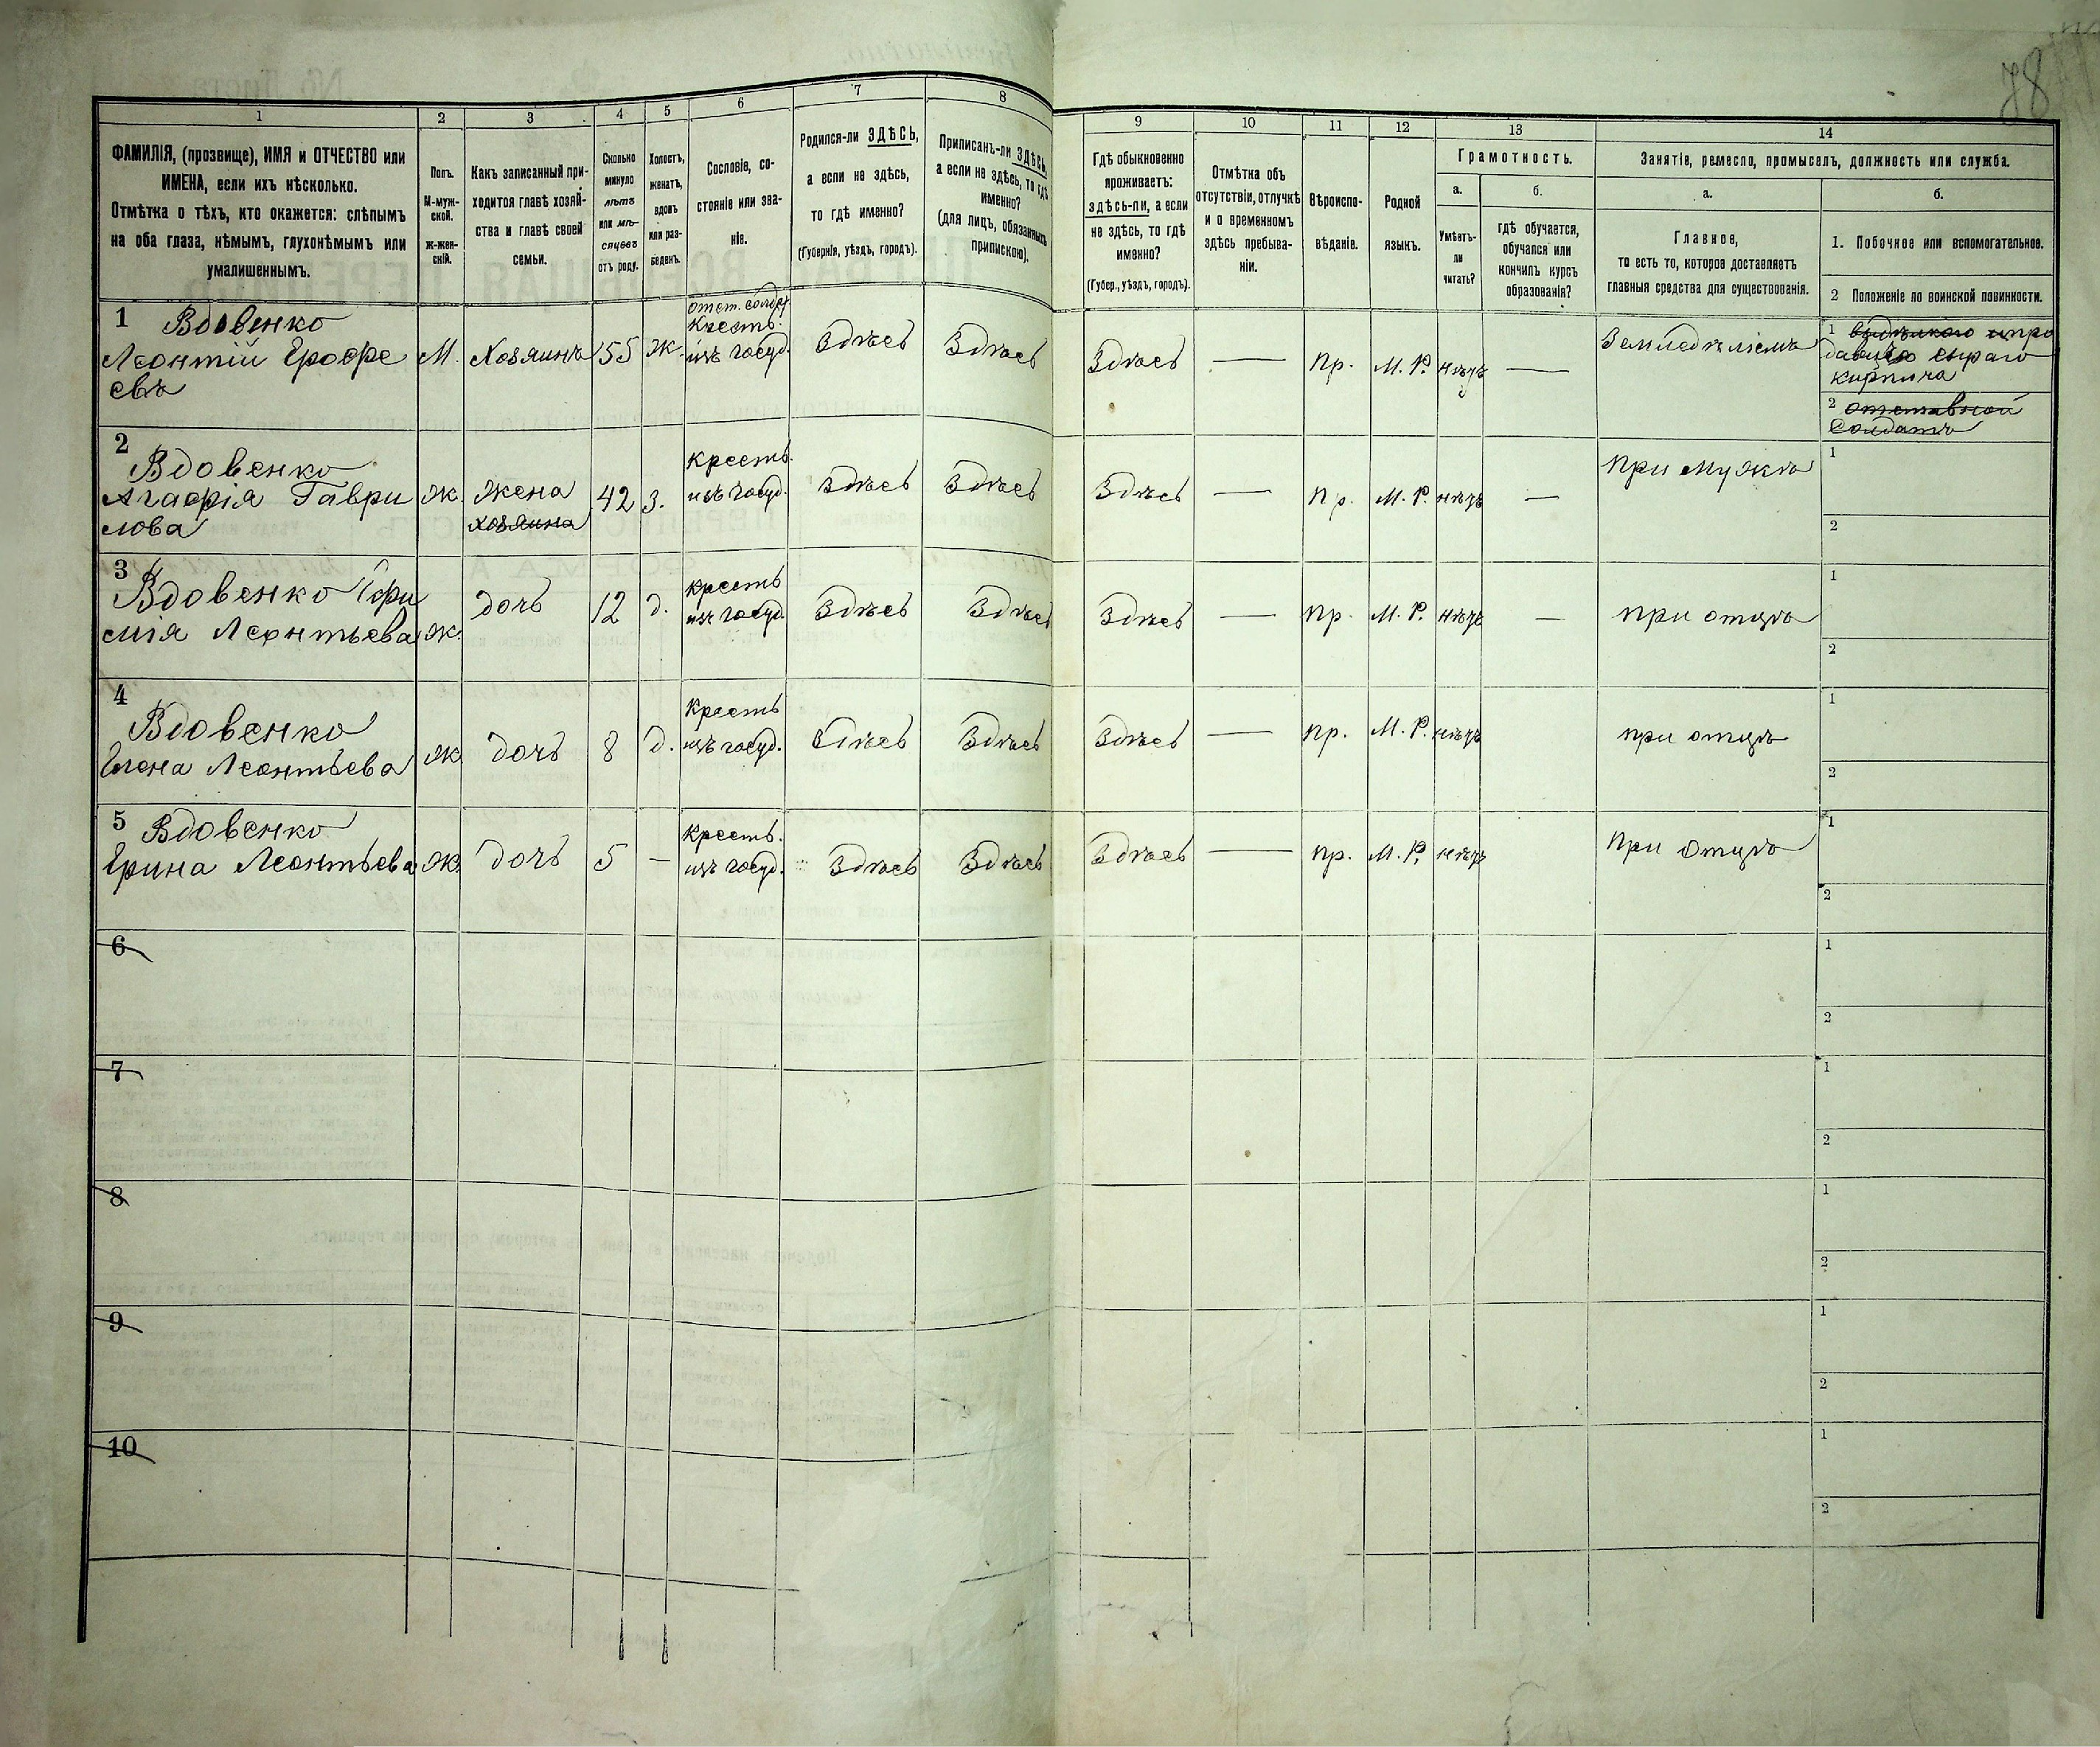 78
1 2 3 4 5 6 7 8 9 10 11 12 13 14
ФАМИЛІЯ, (прозвище), ИМЯ и ОТЧЕСТВО или
ИМЕНА, если ихъ нѣсколько.
Отмѣтка о тѣхъ, кто окажется: слѣпымъ
на оба глаза, нѣмымъ, глухонѣмымъ или
умалишеннымъ.
Полъ.
М-муж-
ской.
ж-жен-
скій.
Какъ записанный при-
ходится главѣ хозяй-
ства и главѣ своей
семьи.
Сколько
минуло
лѣтъ
или мѣ-
сяцевъ
отъ роду.
Холостъ,
женатъ,
вдовъ
или раз-
веденъ.
Сословіе, со-
стояніе или зва-
ніе.
Родился-ли ЗДѢСЬ,
а если не здѣсь,
то гдѣ именно?
(Губернія, уѣздъ, городъ).
Приписанъ-ли ЗДѢСЬ,
а если не здѣсь, то гдѣ
именно?
(для лицъ, обязанныхъ
припискою).
Гдѣ обыкновенно
проживаетъ:
здѣсь-ли, а если
не здѣсь, то гдѣ
именно?
(Губер., уѣздъ, городъ).
Отмѣтка объ
отсутствіи, отлучкѣ
и о временномъ
здѣсь пребыва-
ніи.
Вѣроиспо-
вѣданіе.
Родной
языкъ.
Грамотность.
а.
Умѣетъ-
ли
читать?
б.
гдѣ обучается,
обучался или
кончилъ курсъ
образованія?
Занятіе, ремесло, промыселъ, должность или служба.
а.
Главное,
то есть то, которое доставляетъ
главныя средства для существованія.
б.
1. Побочное или вспомогательное.
2 Положеніе по воинской повинности.
1 Вдовенко
Леонтій Ерофе
евъ
М.
Хозяинъ
55
Ж.
отст. солд.
Кресть.
изъ госуд.
Здѣсь
Здѣсь
Здѣсь
—
Пр.
М. Р.
нѣтъ
—
Земледѣліемъ
1 выдѣлкою и про
давцъ сыраго
кирпича
2 отставной
солдатъ
2 Вдовенко
Агафія Гаври
лова
Ж.
Жена
хозяина
42
З.
Кресть.
изъ госуд.
Здѣсь
Здѣсь
Здѣсь
—
Пр.
М. Р.
нѣтъ
—
При мужѣ
1
2
3 Вдовенко
Леонтьева
Ж.
дочь
12
д.
Кресть
изъ госуд.
Здѣсь
Здѣсь
Здѣсь
—
Пр.
М. Р.
нѣтъ
—
При отцѣ
1
2
4 Вдовенко
Елена Леонтьева
Ж
дочь
8
д.
Кресть
изъ госуд.
Здѣсь
Здѣсь
Здѣсь
—
Пр.
М. Р.
нѣтъ
при отцѣ
1
2
5 Вдовенко
Ирина Леонтьева
Ж.
дочь
5
—
Кресть.
изъ госуд.
Здѣсь
Здѣсь
Здѣсь
—
Пр.
М. Р.
нѣтъ
При отцѣ
1
2
6
1
2
7
1
2
8
1
2
9
1
2
10
1
2